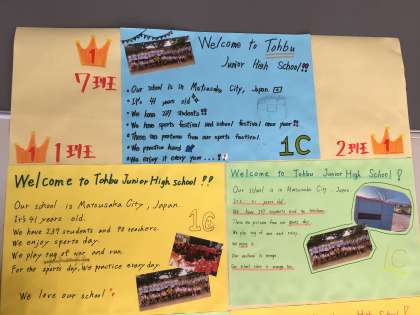 1
7班
Welcome to Tohbu
Junior High School!!
• Our school is in Matsusaka City, Japan.
• It's 41 years old.
• We have 237 students!!
• We have sports festival and school festival once year!!
• These are pictures from our sports festival.
• We practice hard
• We enjoy it every year...!!
1C
1
1班
1
2班
Welcome to Tohbu Junior High school !!
Our school is in Matsusaka City, Japan.
It's 41 years old.
We have 237 students and 90 teachers.
We enjoy sports day.
We play tug of war and run.
For the sports day, We practice every day
We love our school
1C
Welcome to Tohbu Junior High School!
Our school is in Matsusaka City, Japan
It is 41 years old.
We have 237 students and 90 teachers.
These are pictures from our sports day.
We play tug of war and relay.
We enjoy it.
1C
Junior High School!